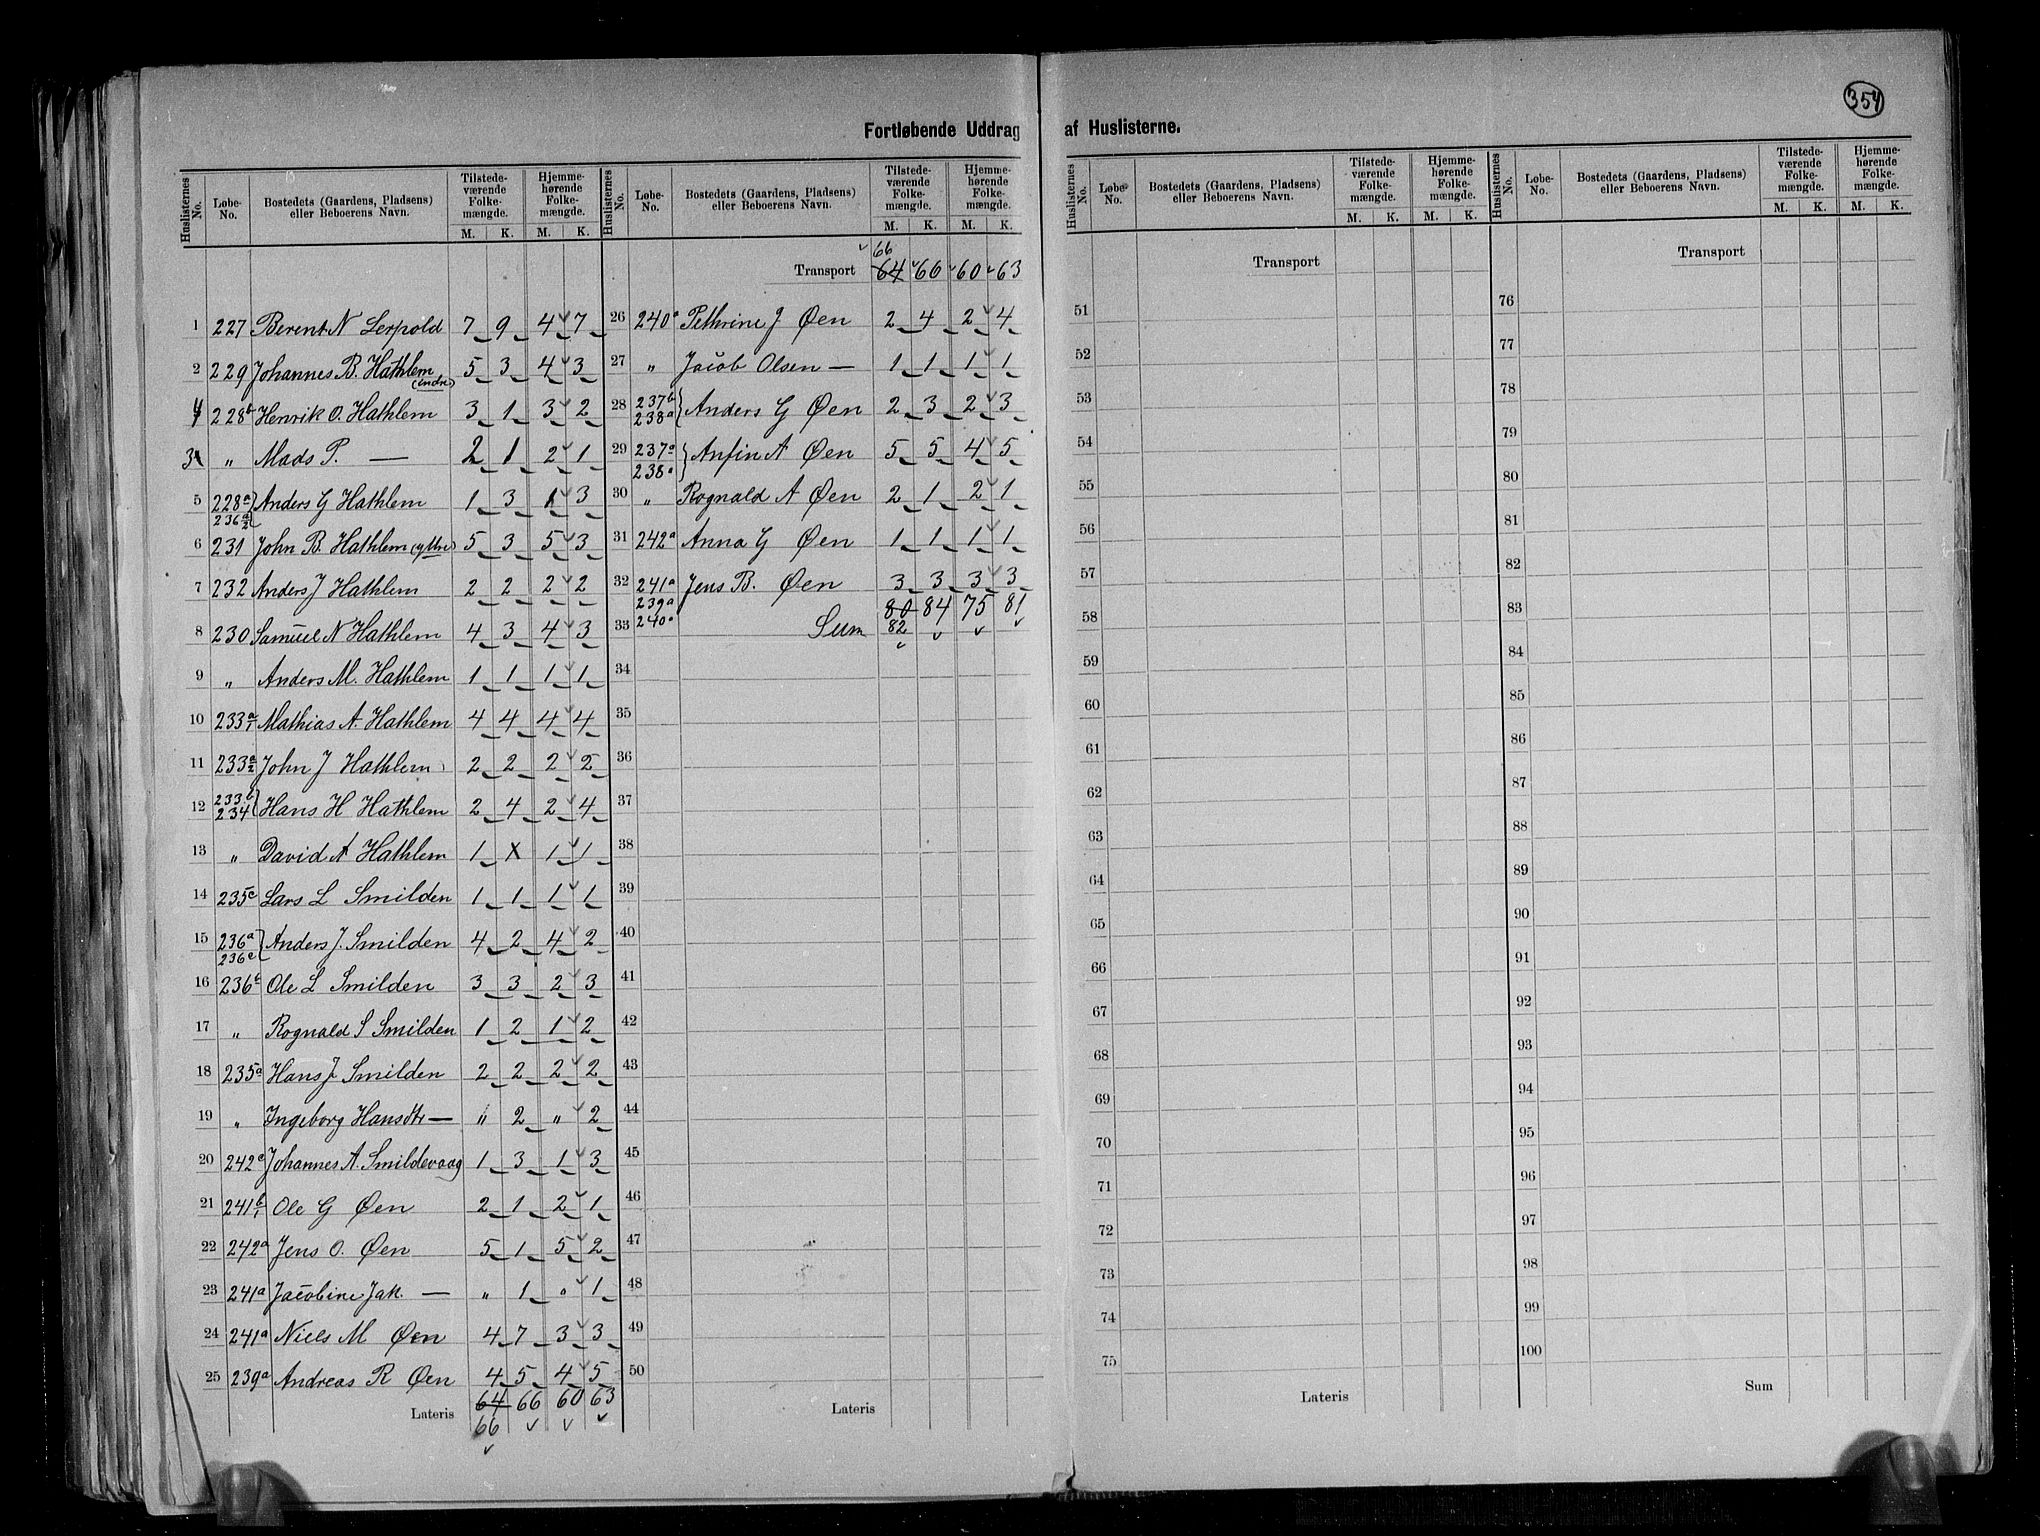 354
Fortløbende Uddrag af Huslisterne.
Huslisternes No. Løbe-No. Bostedets (Gaardens, Pladsens) eller Beboerens Navn. Tilstedeværende Folkemængde. M. K. Hjemmehørende Folkemængde. M. K.
1 227 Berent N Lerpold 7 9 4 7
2 229 Johannes B. Hathlem (indre) 5 3 4 3
4 228b Henrik O. Hathlem 3 1 3 2
3 „ Mads P. — 2 1 2 1
5 228a 236a/2 } Anders G Hathlem 1 3 1 3
6 231 John B. Hathlem (yttre) 5 3 5 3
7 232 Anders J Hathlem 2 2 2 2
8 230 Samuel N Hathlem 4 3 4 3
9 „ Anders M. Hathlem 1 1 1 1
10 233a/1 Mathias A. Hathlem 4 4 4 4
11 233a/2 John J Hathlem 2 2 2 2
12 233b 234 } Hans H Hathlem 2 4 2 4
13 „ David A Hathlem 1 X 1 1
14 235c Lars L Smilden 1 1 1 1
15 236a 236c } Anders J. Smilden 4 2 4 2
16 236b Ole L Smilden 3 3 2 3
17 „ Rognald S Smilden 1 2 1 2
18 235a Hans J Smilden 2 2 2 2
19 „ Ingeborg Hansdtr — „ 2 „ 2
20 242c Johannes A. Smildevaag 1 3 1 3
21 241b/1 Ole G Øen 2 1 2 1
22 242a Jens O. Øen 5 1 5 2
23 241a Jacobine Jak. — „ 1 „ 1
24 241a Niels M Øen 4 7 3 3
25 239a Andreas R Øen 4 5 4 5
Lateris 64 66 60 63
66
Huslisternes No. Løbe-No. Bostedets (Gaardens, Pladsens) eller Beboerens Navn. Tilstedeværende Folkemængde. M. K. Hjemmehørende Folkemængde. M. K.
66
Transport 64 66 60 63
26 240a Pethrine J Øen 2 4 2 4
27 „ Jacob Olsen — 1 1 1 1
28 237b 238a } Anders G Øen 2 3 2 3
29 237a 238a } Anfin A Øen 5 5 4 5
30 „ Rognald A Øen 2 1 2 1
31 242a Anna G Øen 1 1 1 1
32 241a 239a 240a Jens B. Øen 3 3 3 3
33 Sum 80 84 75 81
82
34
35
36
37
38
39
40
41
42
43
44
45
46
47
48
49
50
Lateris
Huslisternes No. Løbe-No. Bostedets (Gaardens, Pladsens) eller Beboerens Navn. Tilstedeværende Folkemængde. M. K. Hjemmehørende Folkemængde. M. K.
Transport
51
52
53
54
55
56
57
58
59
60
61
62
63
64
65
66
67
68
69
70
71
72
73
74
75
Lateris
Huslisternes No. Løbe-No. Bostedets (Gaardens, Pladsens) eller Beboerens Navn. Tilstedeværende Folkemængde. M. K. Hjemmehørende Folkemængde. M. K.
Transport
76
77
78
79
80
81
82
83
84
85
86
87
88
89
90
91
92
93
94
95
96
97
98
99
100
Sum